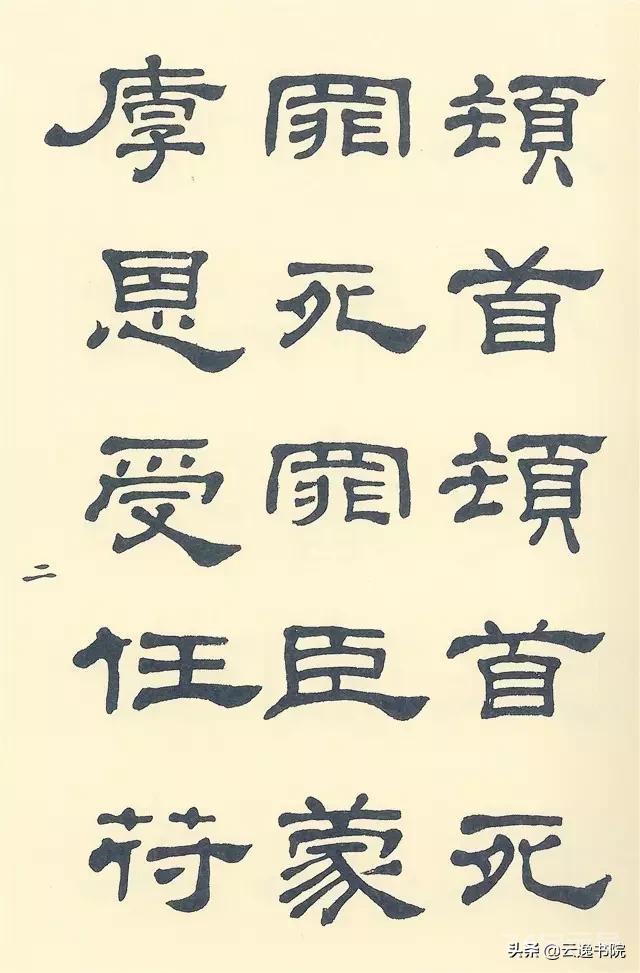 頓首頓首死
罪死罪臣蒙
厚恩受任符
二
头条 @云逸书院